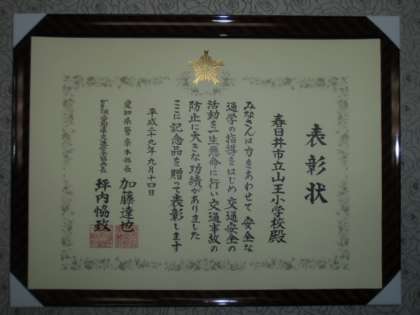 表彰状
春日井市立山王小学校殿
みなさんは力をあわせて安全な
通学の指導をはじめ交通安全の
活動を一生懸命に行い交通事故の
防止に大きな功績がありました
ここに記念品を贈って表彰します
平成二十九年九月十四日
愛知県警察本部長 加藤達也
坪内恊致